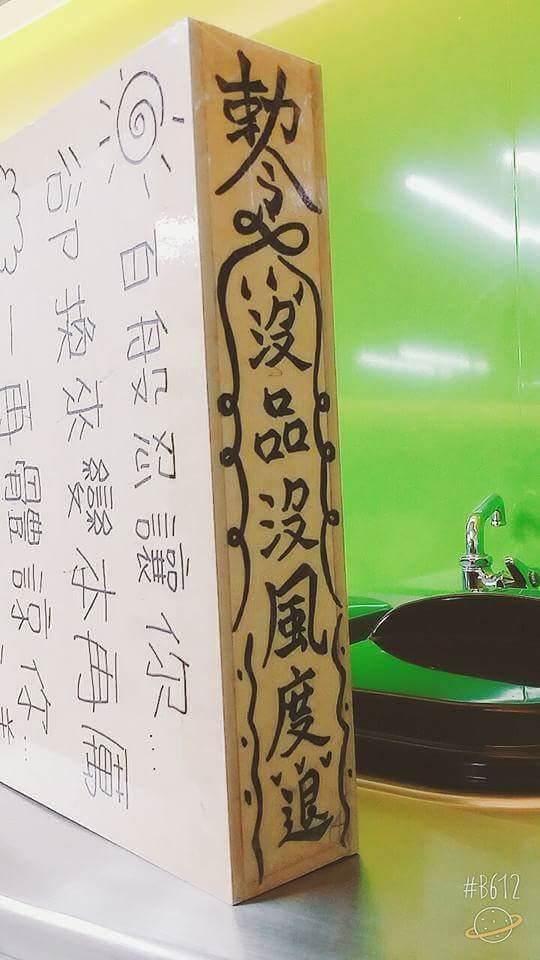 勅令
沒品沒風度退
百般忍讓你...
卻換來變本再厲
一再體諒你
#B612